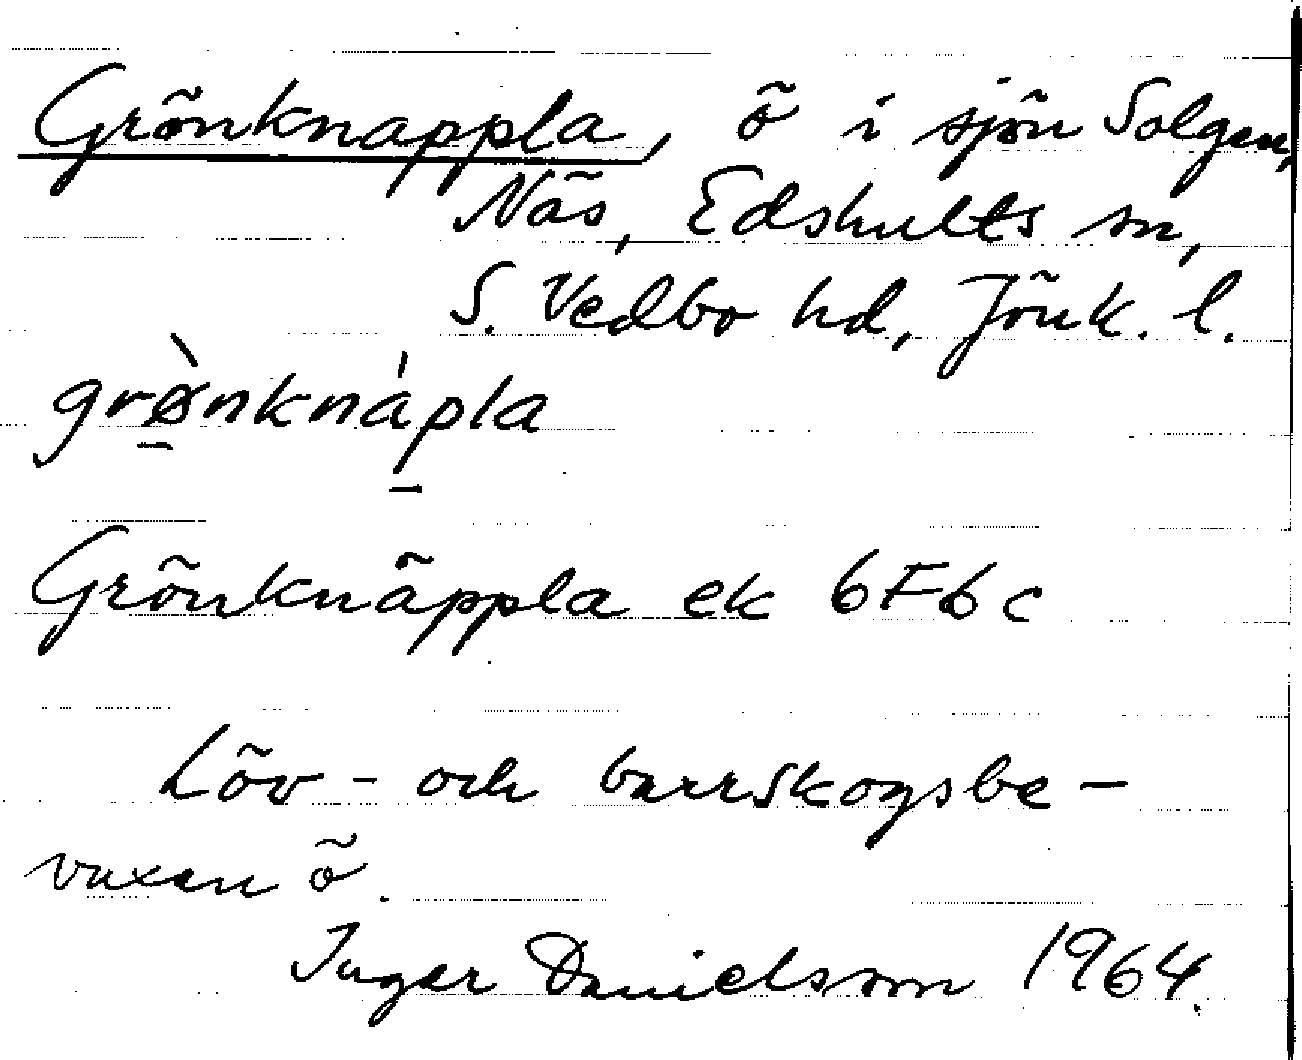 Grönknappla, ö i sjön Solgen,
Näs, Edshults sn,
S. Vedbo hd, Jönk. l.
grø̠̀nknáp̠la
Grönknäppla ek 6F6c
Löv- och barrskogsbe-
vuxen ö.
Inger Danielsson 1964.